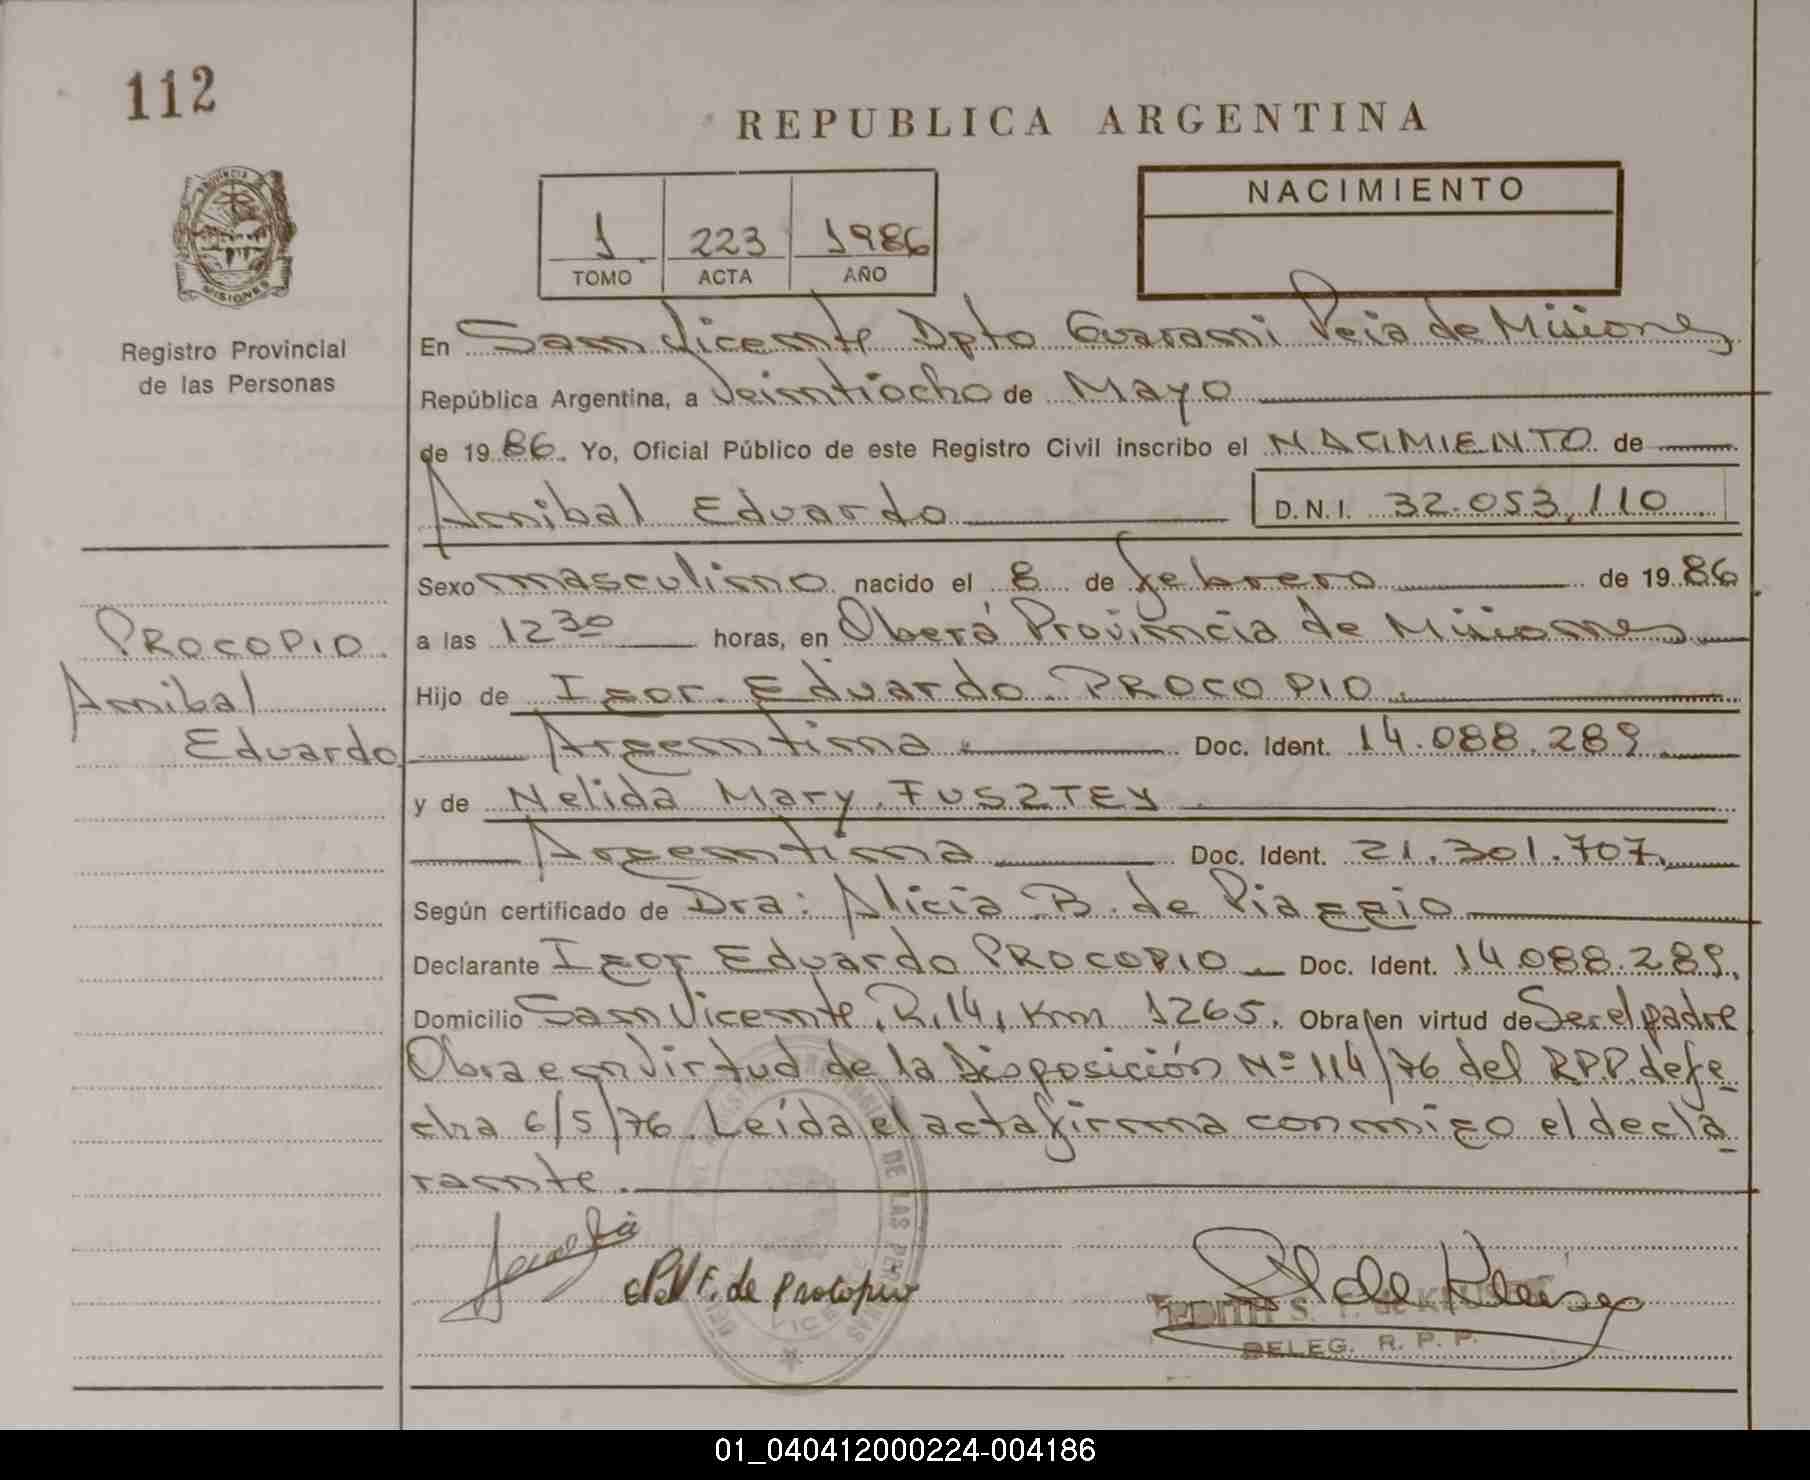 112
REPUBLICA ARGENTINA
NACIMIENTO
1 223 1986
TOMO ACTA AÑO
PROVINCIA
MISIONES
Registro Provincial
de las Personas
En San Vicente Dpto Guarani Pcia de Misiones
República Argentina, a Veintiocho de Mayo
de 1986. Yo, Oficial Público de este Registro Civil inscribo el NACIMIENTO de
Annibal Eduardo D.N.I. 32.053,110
Sexo masculino nacido el 8 de febrero de 1986
a las 12 30 horas, en Oberá Provincia de Misiones
Hijo de Igor Eduardo PROCOPIO.
Argentina Doc. Ident. 14.088.289
y de Nelida Mary FUSZTEY
Argentina Doc. Ident. 21.301.707,
Según certificado de Dra: Alicia B. de Piaggio
Declarante Igor Eduardo PROCOPIO Doc. Ident. 14.088.289,
Domicilio San Vicente, R, 14, Km 1265. Obra/en virtud de Ser el padre
Obra en virtud de la Disposición Nº 114/76 del R.P.P. de fe-
cha 6/5/76. Leída el acta firma conmigo el decla-
rante.
PROCOPIO
Annibal
Eduardo
F. de Procopio
de Kleins
EDITH S.
DELEG. R. P. P.
DE LAS PERSONAS
01_040412000224-004186